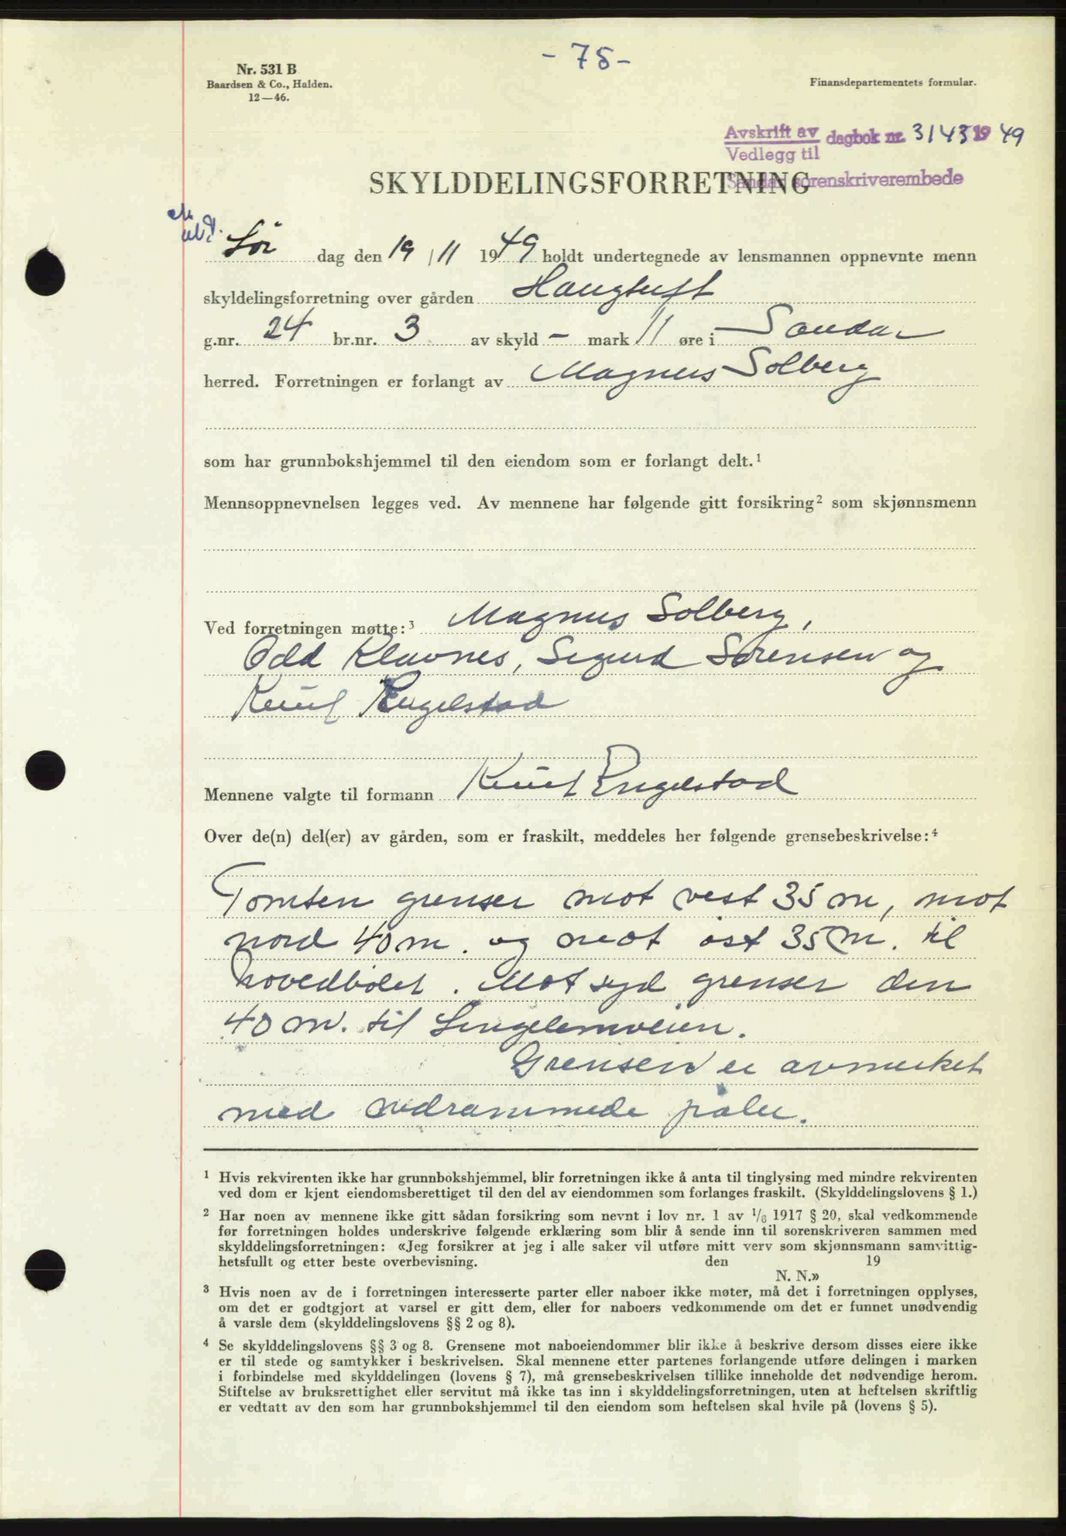 - 75 -
Nr. 531 B
Baardsen & Co., Halden.
12—46.
Finansdepartementets formular.
Avskrift av
Vedlegg til
dagbok nr. 3143 1949
Sandar sorenskriverembede
SKYLDDELINGSFORRETNING
Lør dag den 19/11 1949 holdt undertegnede av lensmannen oppnevnte menn
skyldelingsforretning over gården Haugtuft
g.nr. 24 br.nr. 3 av skyld – mark 11 øre i Sandar
herred. Forretningen er forlangt av Magnus Solberg
som har grunnbokshjemmel til den eiendom som er forlangt delt.¹
Mennsoppnevnelsen legges ved. Av mennene har følgende gitt forsikring² som skjønnsmenn
Ved forretningen møtte:³ Magnus Solberg,
Odd Klavnes, Sigurd Sørensen og
Knut Engelstad
Mennene valgte til formann Knut Engelstad
Over de(n) del(er) av gården, som er fraskilt, meddeles her følgende grensebeskrivelse:⁴
Tomten grenser mot vest 35 m, mot
nord 40 m. og mot øst 35 m. til
hovedbølet. Mot syd grenser den
40 m. til Lingelemveien.
Grensen er avmerket
med nedrammede pæler.
¹ Hvis rekvirenten ikke har grunnbokshjemmel, blir forretningen ikke å anta til tinglysing med mindre rekvirenten
ved dom er kjent eiendomsberettiget til den del av eiendommen som forlanges fraskilt. (Skylddelingslovens § 1.)
² Har noen av mennene ikke gitt sådan forsikring som nevnt i lov nr. 1 av 1/6 1917 § 20, skal vedkommende
før forretningen holdes underskrive følgende erklæring som blir å sende inn til sorenskriveren sammen med
skylddelingsforretningen: «Jeg forsikrer at jeg i alle saker vil utføre mitt verv som skjønnsmann samvittig-
hetsfullt og etter beste overbevisning. den 19
N. N.»
³ Hvis noen av de i forretningen interesserte parter eller naboer ikke møter, må det i forretningen opplyses,
om det er godtgjort at varsel er gitt dem, eller for naboers vedkommende om det er funnet unødvendig
å varsle dem (skylddelingslovens §§ 2 og 8).
⁴ Se skylddelingslovens §§ 3 og 8. Grensene mot naboeiendommer blir ikke å beskrive dersom disses eiere ikke
er til stede og samtykker i beskrivelsen. Skal mennene etter partenes forlangende utføre delingen i marken
i forbindelse med skylddelingen (lovens § 7), må grensebeskrivelsen tillike inneholde det nødvendige herom.
Stiftelse av bruksrettighet eller servitut må ikke tas inn i skylddelingsforretningen, uten at heftelsen skriftlig
er vedtatt av den som har grunnbokshjemmel til den eiendom som heftelsen skal hvile på (lovens § 5).